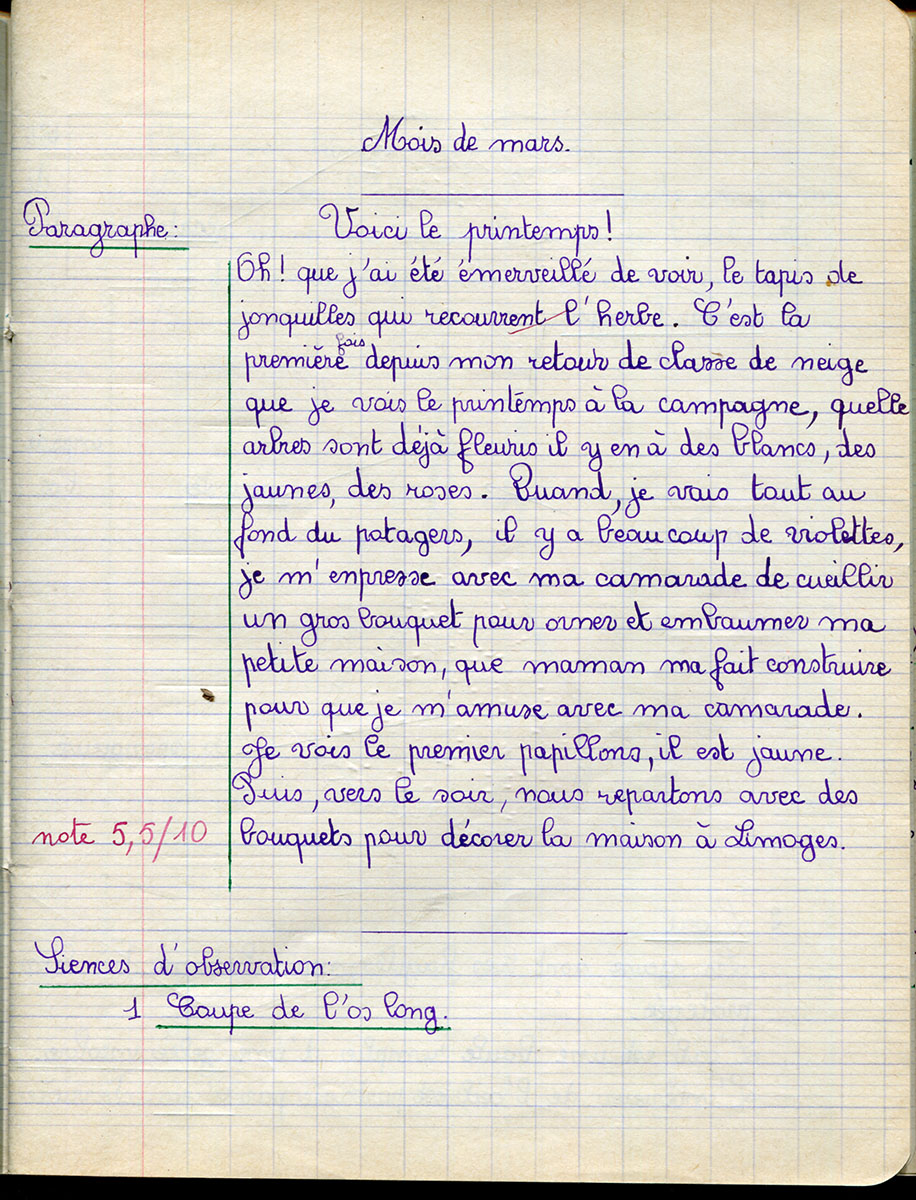 Mois de mars.
Paragraphe: Voici le printemps!
Oh! que j'ai été émerveillé de voir, le tapis de
jonquilles qui recouvrent l'herbe. C'est la
première fois depuis mon retour de classe de neige
que je vois le printemps à la campagne, quelle
arbres sont déjà fleuris il y en à des blancs, des
jaunes, des roses. Quand, je vais tout au
fond du potagers, il y a beaucoup de violettes,
je m'enpresse avec ma camarade de cueillir
un gros bouquet pour orner et embaumer ma
petite maison, que maman ma fait construire
pour que je m'amuse avec ma camarade.
Je vois le premier papillons, il est jaune.
Puis, vers le soir, nous repartons avec des
note 5,5/10 bouquets pour décorer la maison à Limoges.
Siences d'observation:
1 Coupe de l'os long.